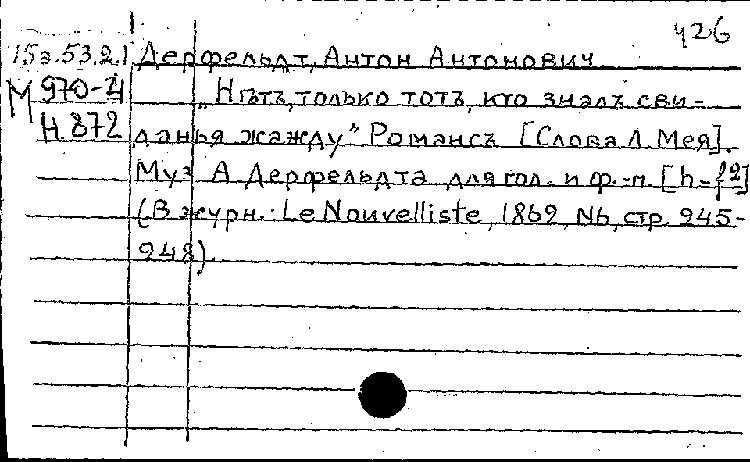 426
15з.53.2.1 Дерфельдт, Антон Антонович
М 970-4 „Нѣтъ, только тотъ, кто зналъ сви-
Н.872 данья жажду” Романсъ [Слова Л Мея].
Муз А Дерфельдта для гол. и ф.-п.
(В журн.: Le Nouvelliste, 1869, №6, стр. 245-
248).